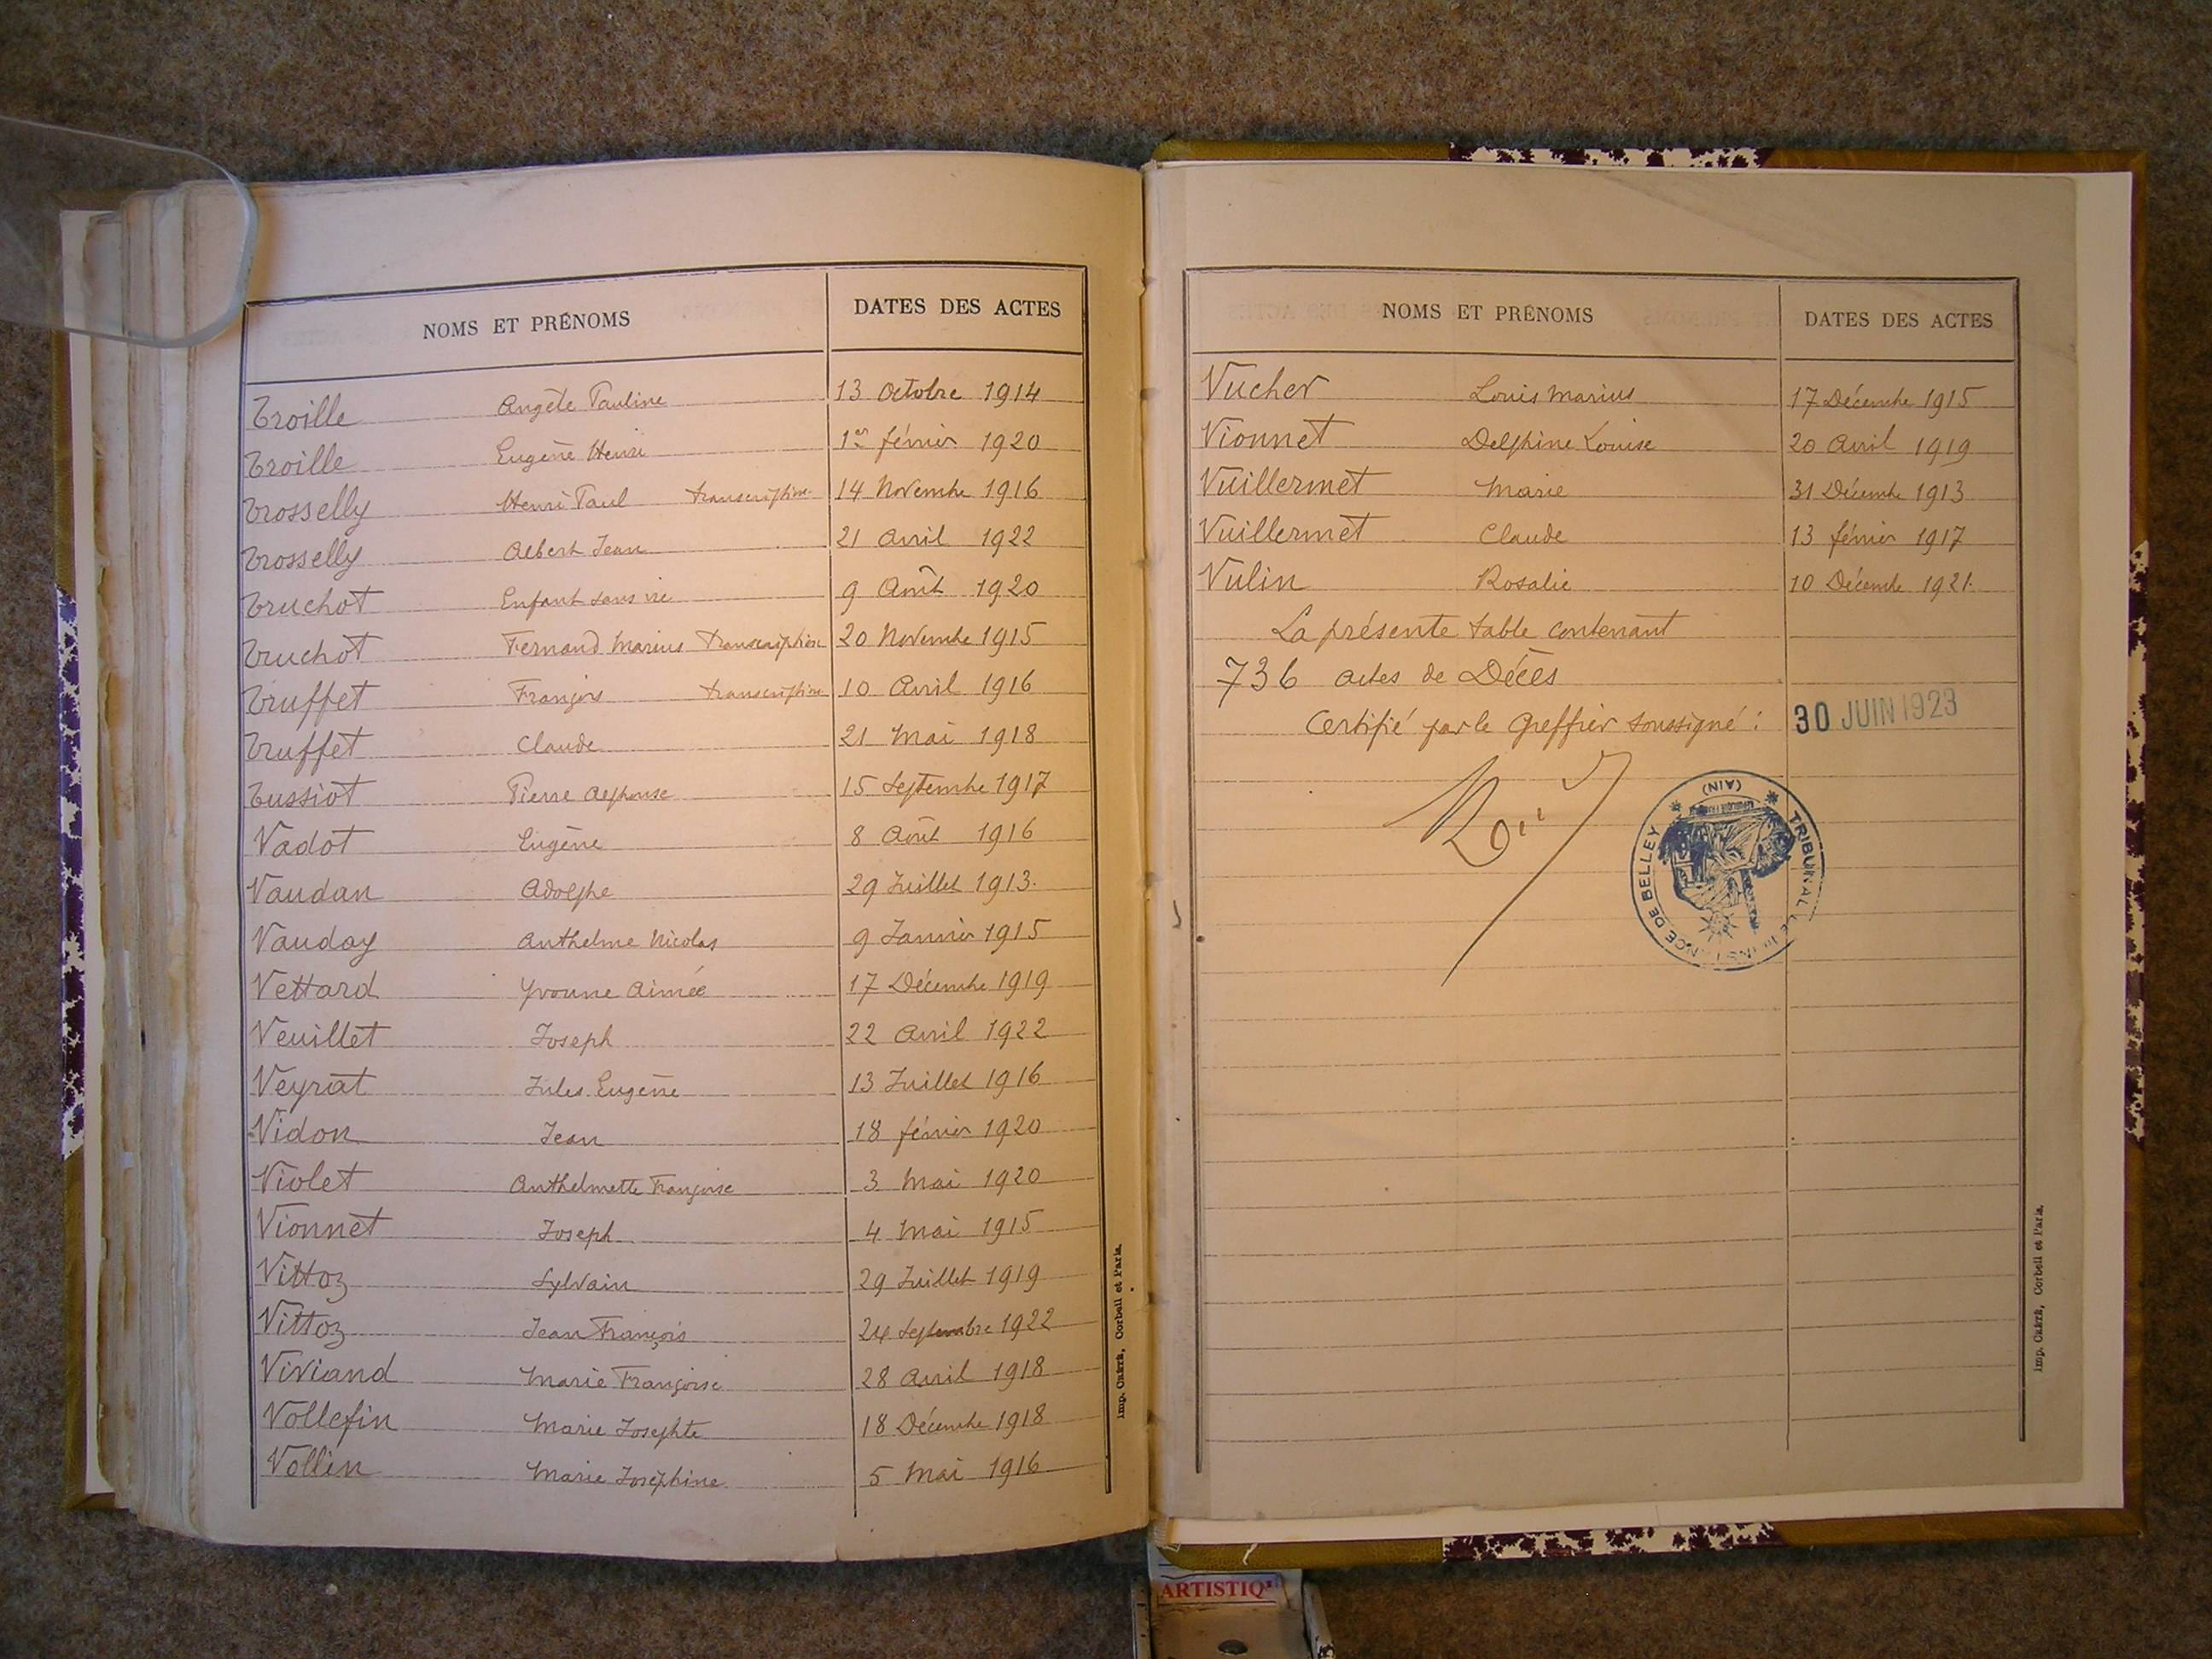 NOMS ET PRÉNOMS DATES DES ACTES
Troille Angèle Pauline 13 Octobre 1914
Troille Eugène Henri 1er février 1920
Trosselly Henri Paul transcription 14 Novembre 1916
Trosselly Albert Jean 21 Avril 1922
Truchot Enfant sans vie 9 Août 1920
Truchot Fernand Marius Transcription 20 Novembre 1915
Truffet François transcription 10 Avril 1916
Truffet Claude 21 Mai 1918
Tussiot Pierre Alphonse 15 Septembre 1917
Vadot Eugène 8 Août 1916
Vaudan Adolphe 29 Juillet 1913.
Vauday Anthelme Nicolas 9 Janvier 1915
Vettard Yvonne Aimée 17 Décembre 1919
Veuillet Joseph 22 Avril 1922
Veyrat Jules Eugène 13 Juillet 1916
Vidon Jean 18 février 1920
Violet Anthelmette Françoise 3 Mai 1920
Vionnet Joseph 4 Mai 1915
Vittoz Sylvain 29 Juillet 1919
Vittoz Jean François 24 Septembre 1922
Viviand Marie Françoise 28 Avril 1918
Vollefin Marie Josephte 18 Décembre 1918
Vollin Marie Joséphine 5 Mai 1916
Imp. CRÉTÉ, Corbeil et Paris.
NOMS ET PRÉNOMS DATES DES ACTES
Vucher Louis Marius 17 Décembre 1915
Vionnet Delphine Louise 20 Avril 1919
Vuillermet Marie 31 Décembre 1913
Vuillermet Claude 13 février 1917
Vulin Rosalie 10 Décembre 1921.
La présente table contenant
736 actes de Décès
Certifié par le Greffier soussigné : 30 JUIN 1923
TRIBUNAL DE 1re INSTANCE DE BELLEY (AIN)
Imp. CRÉTÉ, Corbeil et Paris.
ARTISTIQ